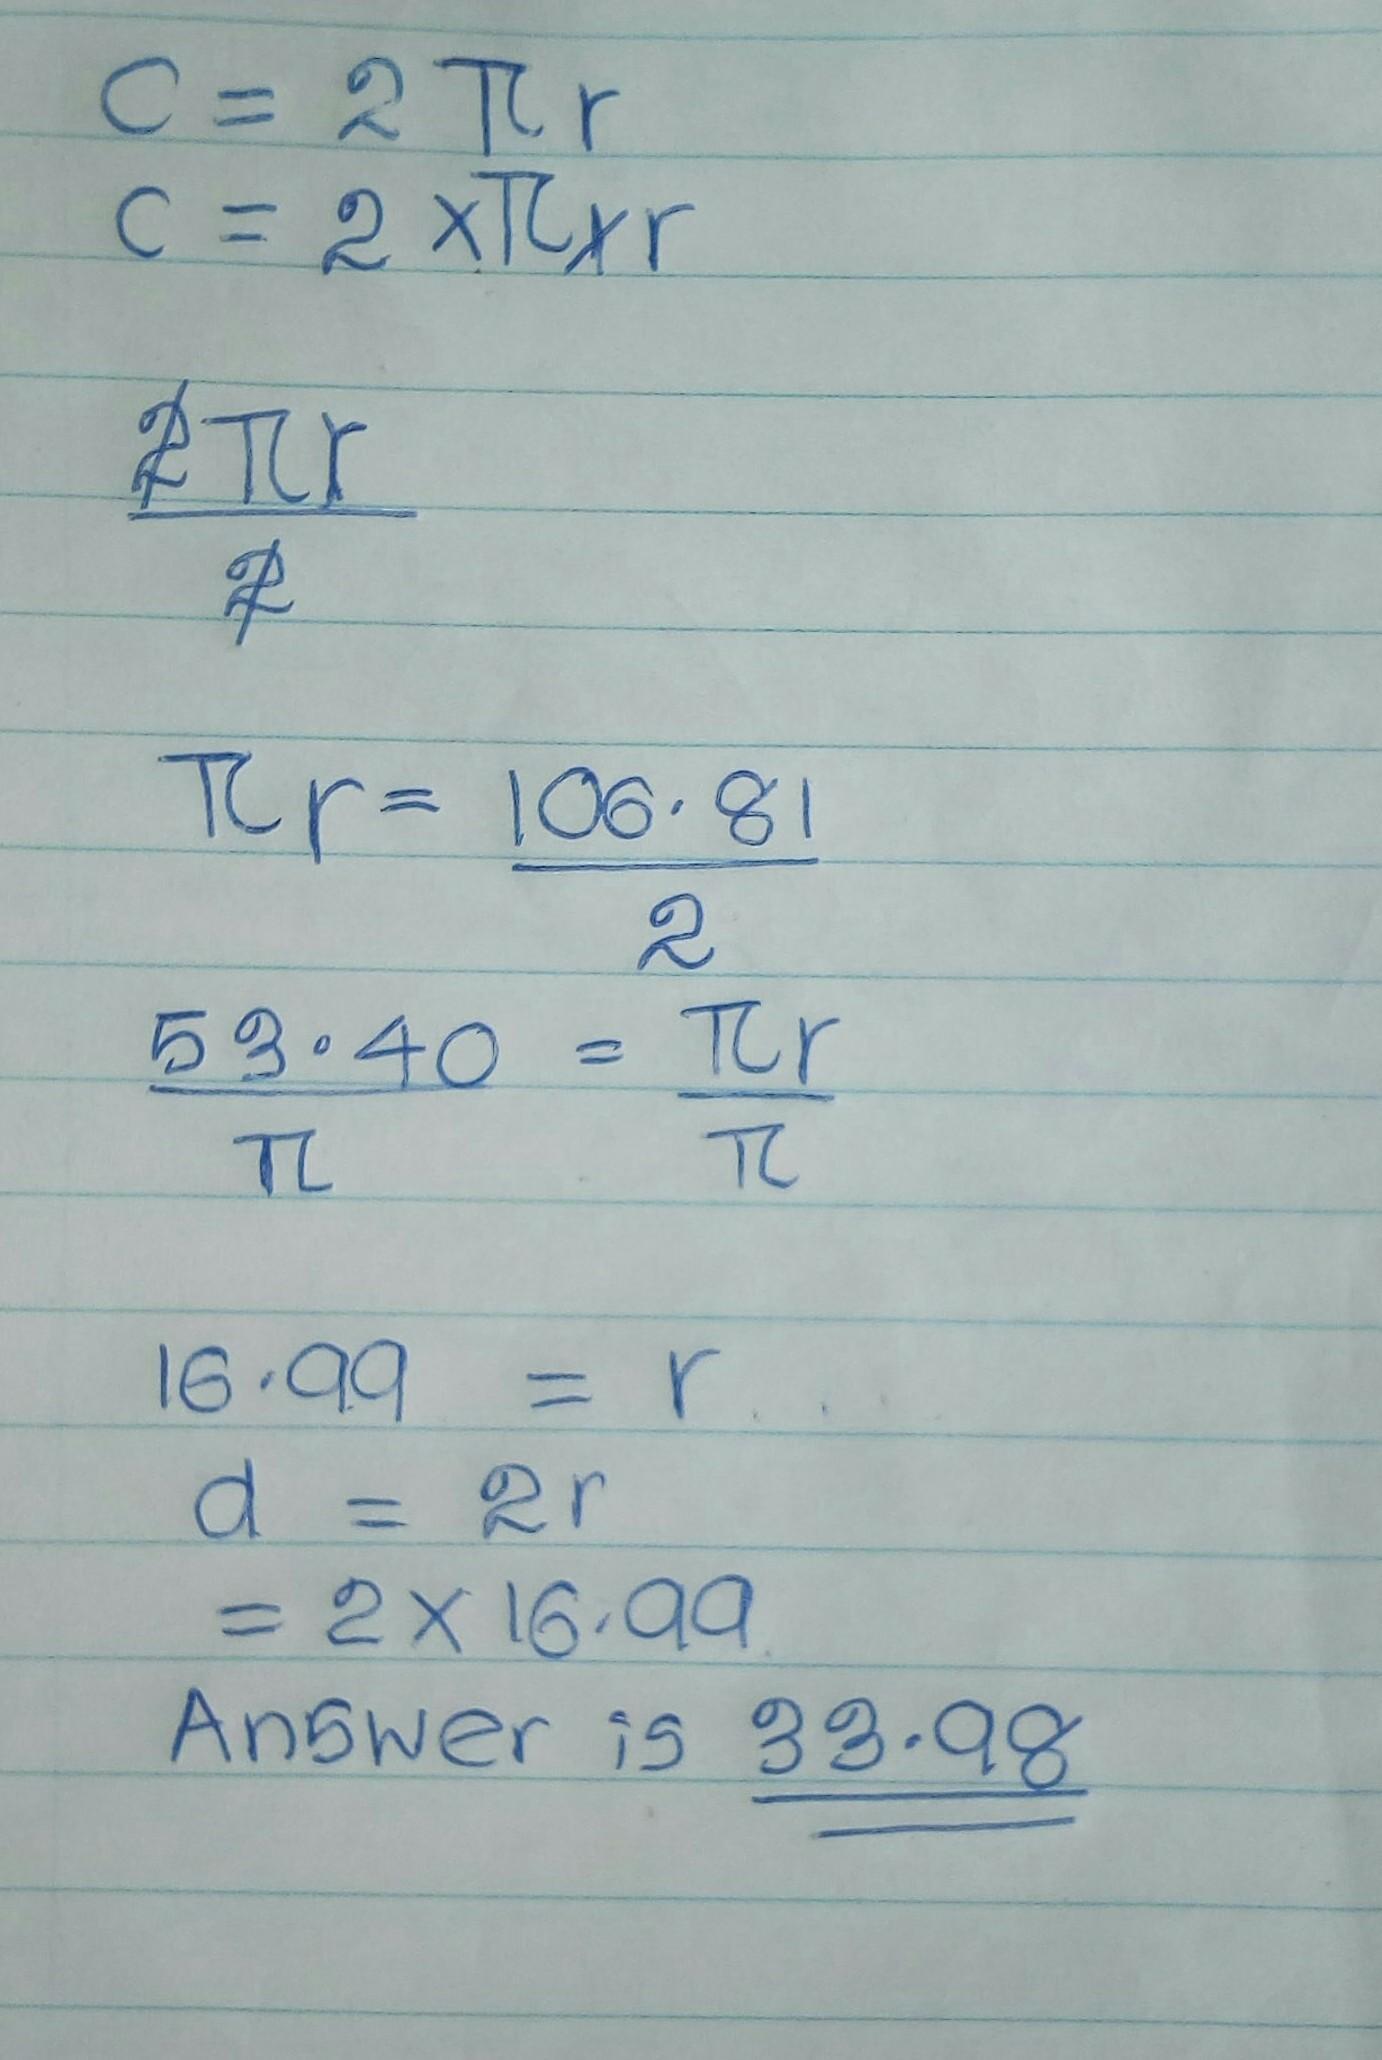 C = 2 π r
C = 2 × π × r
2 π r
2
π r = 106.81
2
53.40 = π r
π π
16.99 = r
d = 2 r
= 2 × 16.99
Answer is 33.98